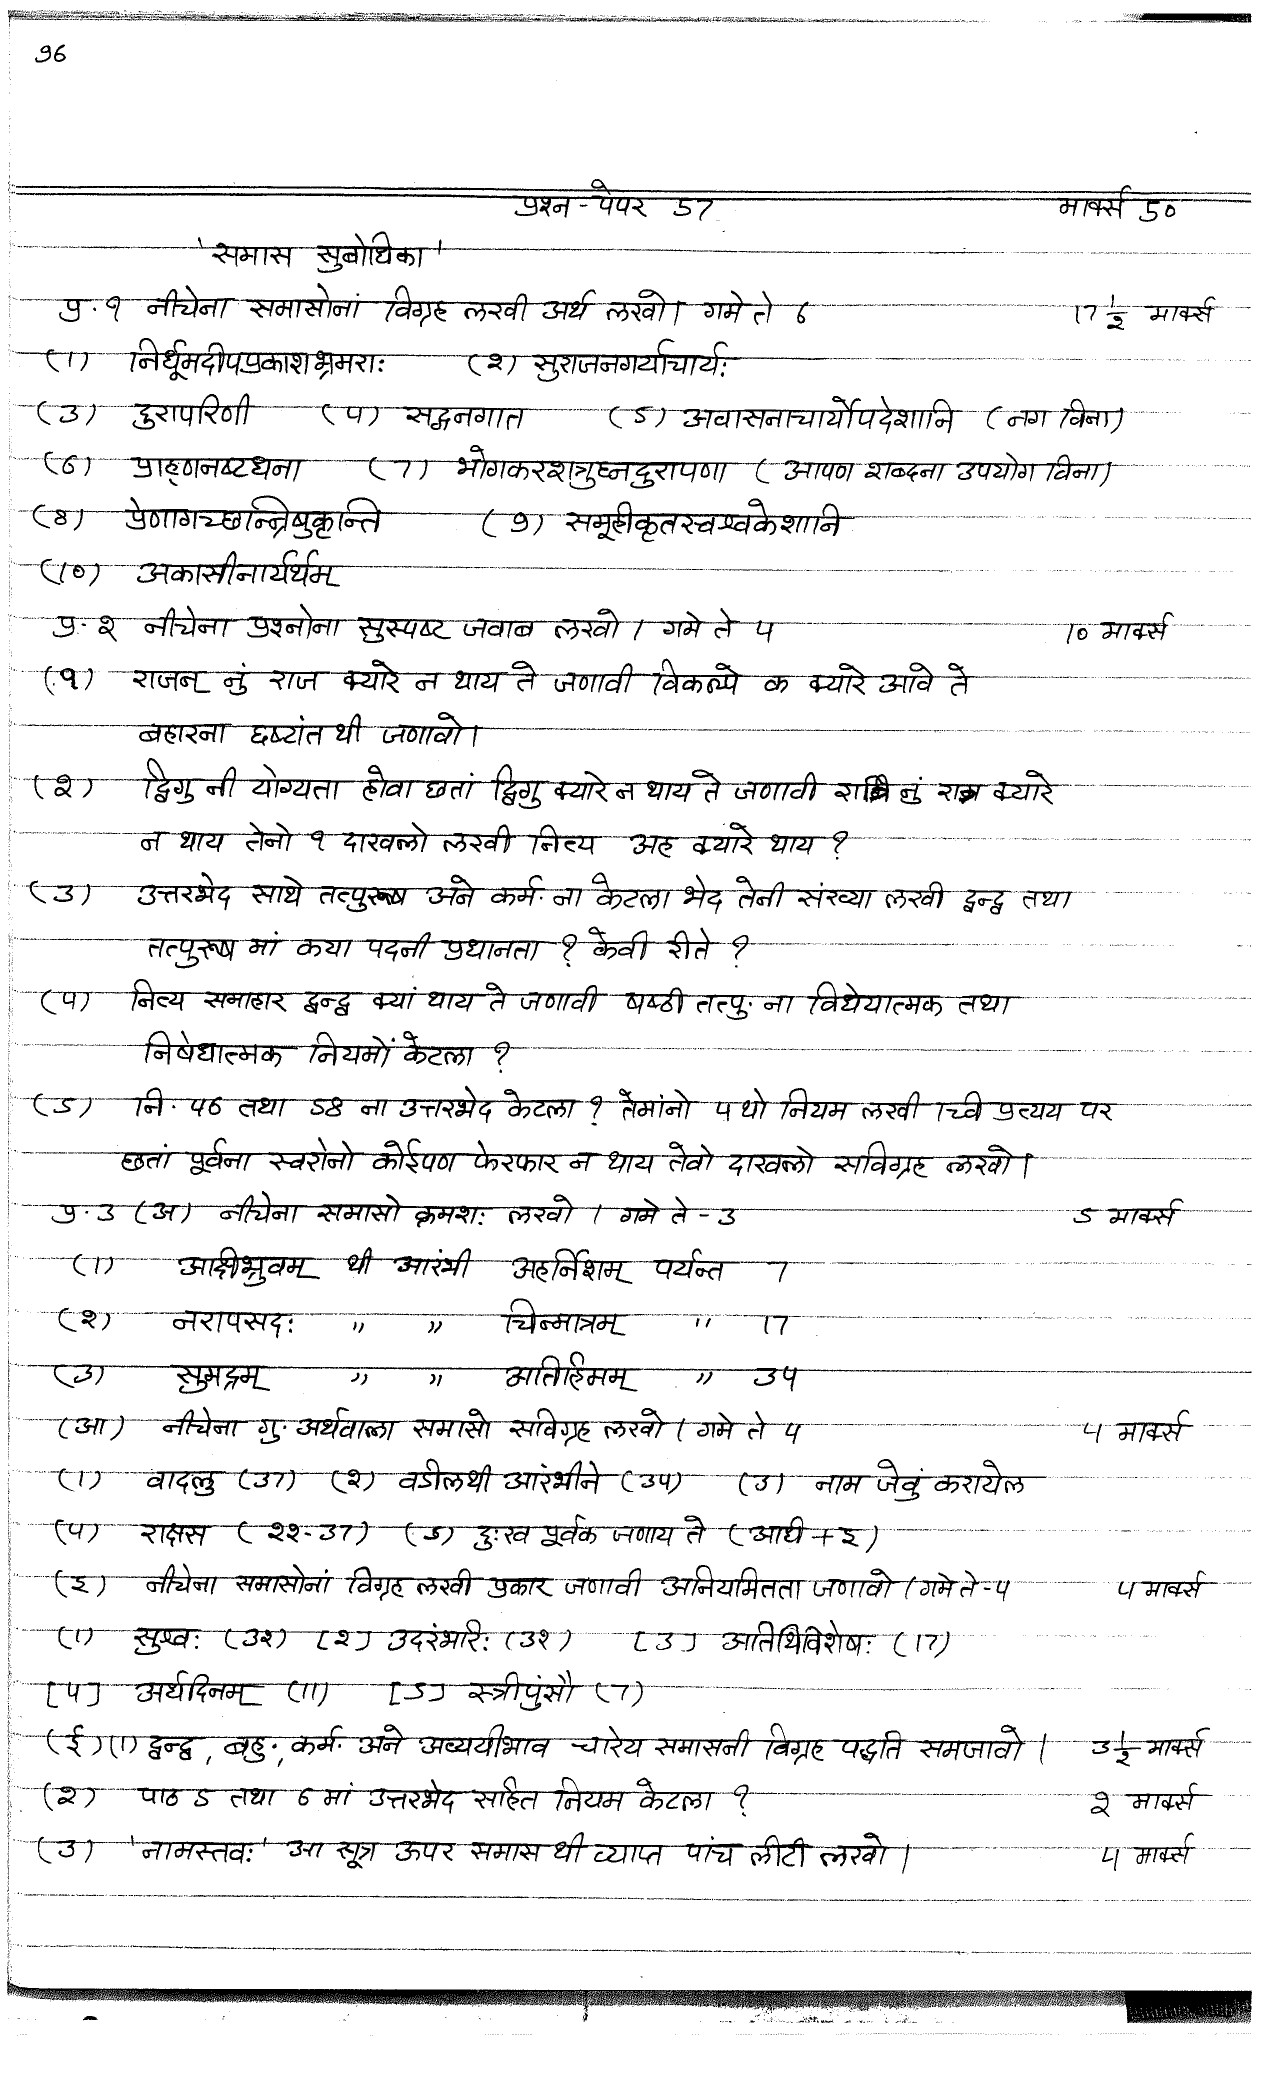 96
प्रश्न-पेपर 57 मार्क्स 50
'समास सुबोधिका'
प्र.१ नीचेना समासोनां विग्रह लखी अर्थ लखो। गमे ते 6 17 1/2 मार्क्स
(1) निर्धूमदीपप्रकाशभ्रमराः (२) सुराजनगर्याचार्यः
(3) दुरापरिणी (4) सद्मनगात (5) अवासनाचार्योपदेशानि (नग विना)
(6) प्राह्णनष्टधना (7) भोगकरशत्रुघ्नदुरापणा (आपण शब्दना उपयोग विना)
(8) प्रेणागच्छन्न्रिषुकृान्ति (9) समूहीकृतस्वश्वकेशानि
(10) अकासीनार्यर्थम्
प्र.२ नीचेना प्रश्नोना सुस्पष्ट जवाब लखो। गमे ते 4 10 मार्क्स
(१) राजन् नुं राज क्यारे न थाय ते जणावी विकल्पे क क्यारे आवे ते
बहारना दृष्टांत थी जणावो।
(२) द्विगु नी योग्यता होवा छतां द्विगु क्यारे न थाय ते जणावी रात्रि नुं रात्र क्यारे
न थाय तेनो १ दाखलो लखी नित्य अह क्यारे थाय ?
(3) उत्तरभेद साथे तत्पुरूष अने कर्म. ना केटला भेद तेनी संख्या लखी द्वन्द्व तथा
तत्पुरूष मां कया पदनी प्रधानता ? केवी रीते ?
(4) नित्य समाहार द्वन्द्व क्यां थाय ते जणावी षष्ठी तत्पु. ना विधेयात्मक तथा
निषेधात्मक नियमों केटला ?
(5) नि. 46 तथा 58 ना उत्तरभेद केटला ? तेमांनो 4 थो नियम लखी। च्वि प्रत्यय पर
छतां पूर्वना स्वरोनो कोईपण फेरफार न थाय तेवो दाखलो सविग्रह लखो।
प्र.3 (अ) नीचेना समासो क्रमशः लखो। गमे ते-3 5 मार्क्स
(1) आक्षीभ्रुवम् थी आरंभी अहर्निशम् पर्यन्त 7
(२) नरापसदः " " चिन्मात्रम् " 17
(3) सुमद्रम् " " अतिहिमम् " 34
(आ) नीचेना गु. अर्थवाला समासो सविग्रह लखो। गमे ते 4 4 मार्क्स
(1) वादलु (37) (२) वडीलथी आरंभीने (34) (3) नाम जेवुं करायेल
(4) राक्षस (२२-37) (5) दुःख पूर्वक जणाय ते (आधी + इ)
(इ) नीचेना समासोनां विग्रह लखी प्रकार जणावी अनियमितता जणावो। गमे ते-4 4 मार्क्स
(1) सुश्वः (3२) [२] उदरंभरिः (3२) [3] अतिथिविशेषः (17)
[4] अर्धदिनम् (11) [5] स्त्रीपुंसौ (7)
(ई) (1) द्वन्द्व, बहु., कर्म. अने अव्ययीभाव चारेय समासनी विग्रह पद्धति समजावो। 3 1/2 मार्क्स
(२) पाठ 5 तथा 6 मां उत्तरभेद सहित नियम केटला ? २ मार्क्स
(3) 'नामस्तवः' आ सूत्र ऊपर समास थी व्याप्त पांच लीटी लखो। 4 मार्क्स